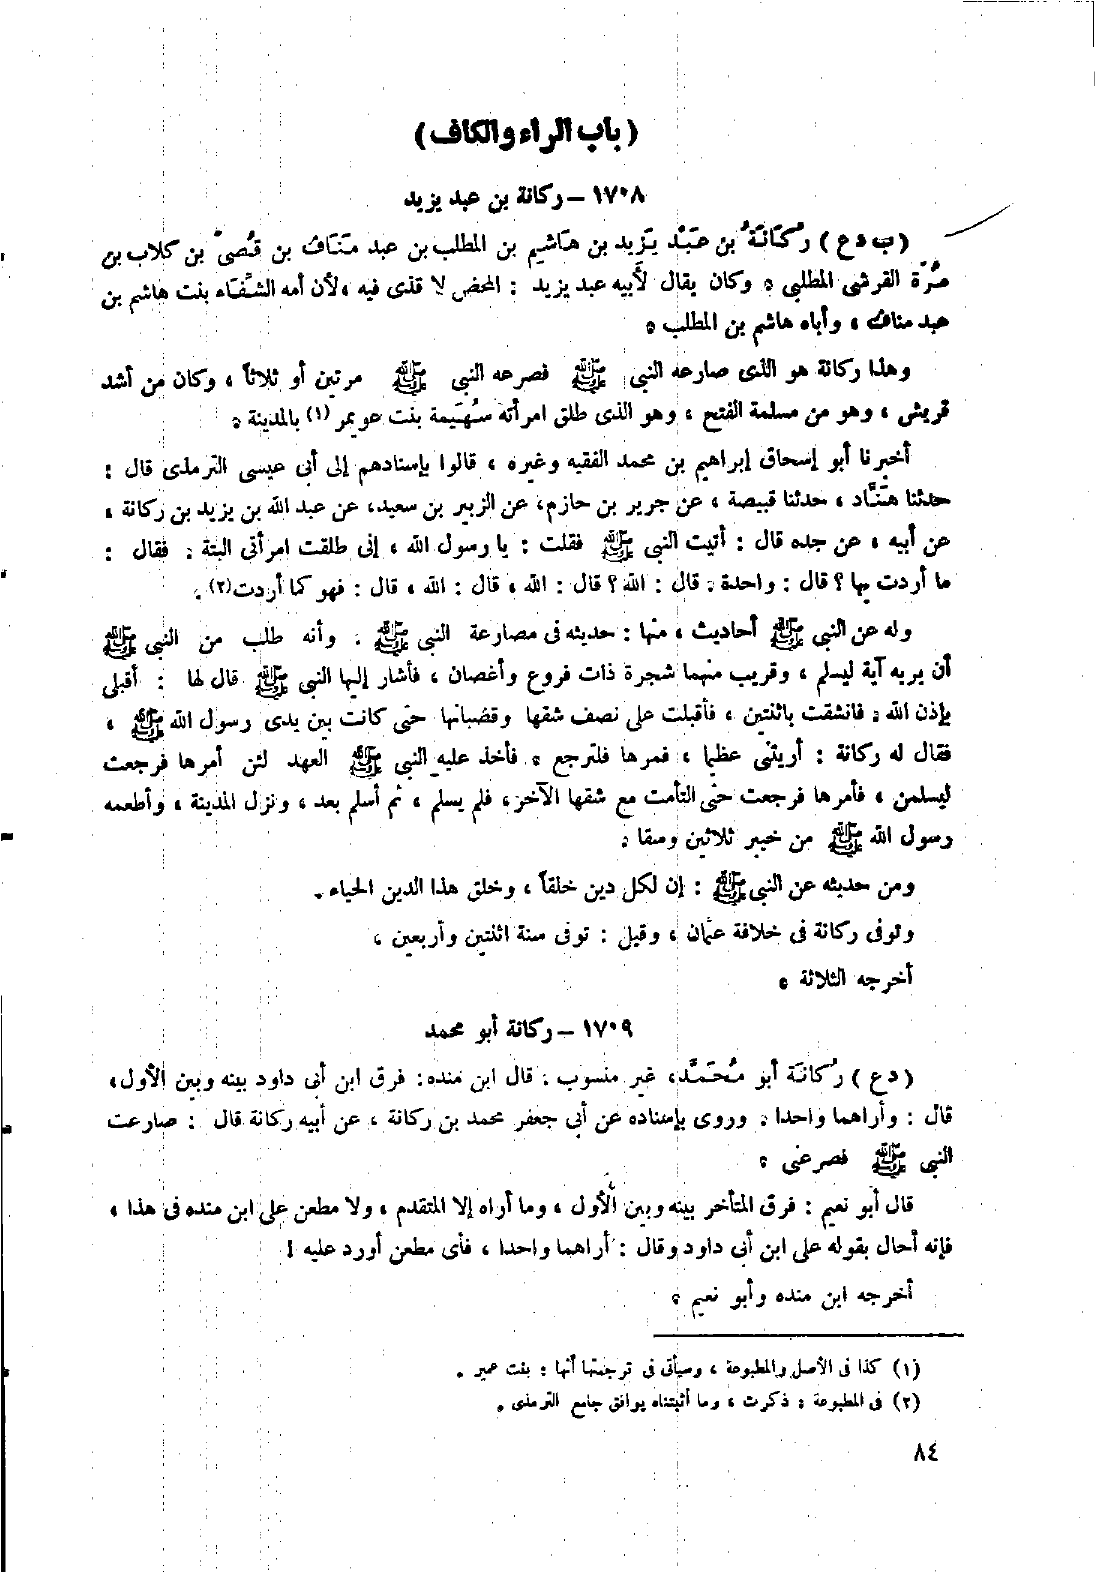 ( باب الراء والكاف )
١٧٠٨ – ركانة بن عبد يزيد
( ب د ع ) رُكَانَةُ بن عَبْد يَزِيد بن هَاشِيم بن المطلب بن عبد مَنَاف بن قُصىّ بن كلاب بن
مُرَّة القرشى المطلبى ، وكان يقال لأبيه عبد يزيد : المحض لا قذى فيه ، لأن أمه الشفاء بنت هاشم بن
عبد مناف ، وأباه هاشم بن المطلب .
وهذا ركانة هو الذى صارعه النبى ﷺ فصرعه النبى ﷺ مرتين أو ثلاثاً ، وكان من أشد
قريش ، وهو من مسلمة الفتح ، وهو الذى طلق امرأته سُهَيمة بنت عويمر (١) بالمدينة .
أخبرنا أبو إسحاق إبراهيم بن محمد الفقيه وغيره ، قالوا بإسنادهم إلى أبى عيسى الترمذى قال :
حدثنا هنَّاد ، حدثنا قبيصة ، عن جرير بن حازم، عن الزبير بن سعيد، عن عبد الله بن يزيد بن ركانة ،
عن أبيه ، عن جده قال : أتيت النبى ﷺ فقلت : يا رسول الله ، إنى طلقت امرأتى البتة . فقال :
ما أردت بها ؟ قال : واحدة . قال : الله ؟ قال : الله ، قال : الله ، قال : فهو كما أردت(٢) .
وله عن النبى ﷺ أحاديث ، منها : حديثه فى مصارعة النبى ﷺ . وأنه طلب من النبى ﷺ
أن يريه آية ليسلم ، وقريب منهما شجرة ذات فروع وأغصان ، فأشار إليها النبى ﷺ قال لها : أقبلى
بإذن الله . فانشقت باثنتين ، فأقبلت على نصف شقها وقضبانها حتى كانت بين يدى رسول الله ﷺ ،
فقال له ركانة : أريتنى عظيما ، فمرها فلترجع . فأخذ عليه النبى ﷺ العهد لئن أمرها فرجعت
ليسلمن ، فأمرها فرجعت حتى التأمت مع شقها الآخر ، فلم يسلم ، ثم أسلم بعد ، ونزل المدينة ، وأطعمه
رسول الله ﷺ من خيبر ثلاثين وسقا .
ومن حديثه عن النبى ﷺ : إن لكل دين خلقاً ، وخلق هذا الدين الحياء .
وتوفى ركانة فى خلافة عثمان ، وقيل : توفى سنة اثنتين وأربعين ،
أخرجه الثلاثة .
١٧٠٩ – ركانة أبو محمد
( د ع ) رُكَانَة أبو مُحَمَّد، غير منسوب . قال ابن منده : فرق ابن أبى داود بينه وبين الأول ،
قال : وأراهما واحدا . وروى بإسناده عن أبى جعفر محمد بن ركانة ، عن أبيه ركانة قال : صارعت
النبى ﷺ فصرعنى .
قال أبو نعيم : فرق المتأخر بينه وبين الأول ، وما أراه إلا المتقدم ، ولا مطعن على ابن منده فى هذا ،
فإنه أحال بقوله على ابن أبى داود وقال : أراهما واحدا ، فأى مطعن أورد عليه !
أخرجه ابن منده وأبو نعيم .
(١) كذا فى الأصل والمطبوعة ، وسيأتى فى ترجمتها أنها : بنت عمير .
(٢) فى المطبوعة : ذكرت ، وما أثبتناه يوافق جامع الترمذى .
٨٤